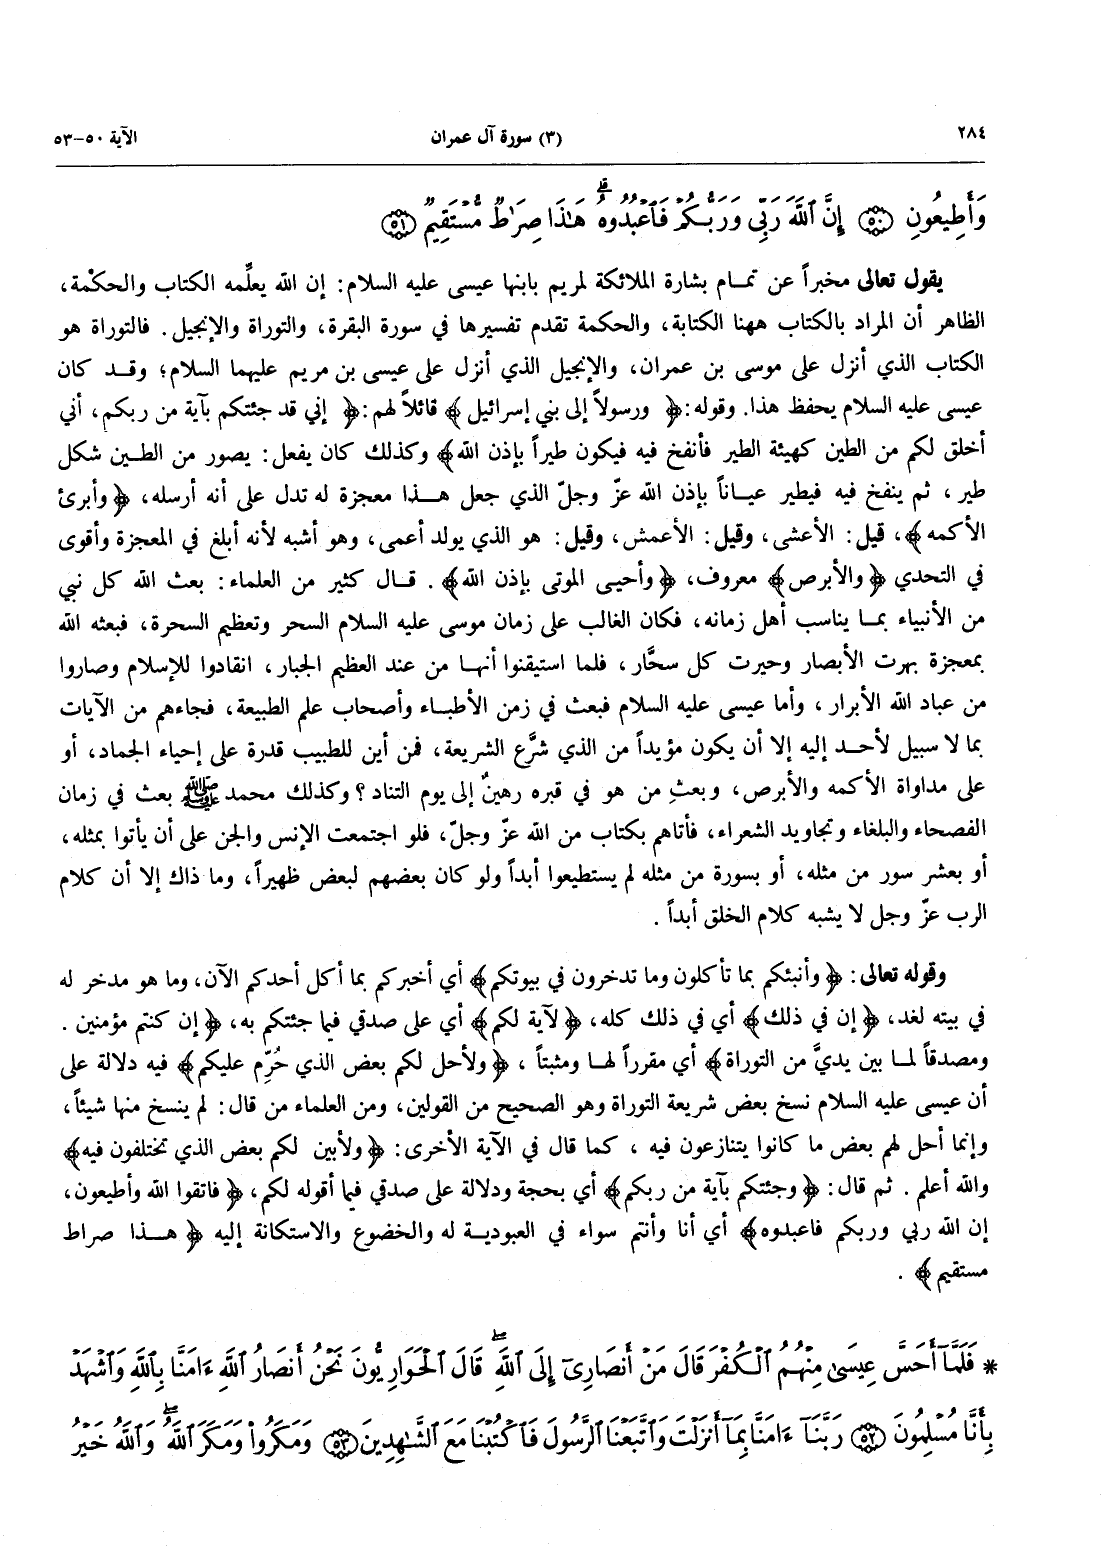 ٢٨٤ (٣) سورة آل عمران الآية ٥٠-٥٣
وَأَطِيعُونِ ﴿٥٠﴾ إِنَّ ٱللَّهَ رَبِّى وَرَبُّكُمْ فَٱعْبُدُوهُ ۗ هَٰذَا صِرَٰطٌ مُّسْتَقِيمٌ ﴿٥١﴾
يقول تعالى مخبراً عن تمـام بشارة الملائكة لمريم بابنها عيسى عليه السلام: إن الله يعلِّمه الكتاب والحكْمة،
الظاهر أن المراد بالكتاب ههنا الكتابة، والحكمة تقدم تفسيرها في سورة البقرة، والتوراة والإنجيل. فالتوراة هو
الكتاب الذي أنزل على موسى بن عمران، والإنجيل الذي أنزل على عيسى بن مريم عليهما السلام؛ وقـد كان
عيسى عليه السلام يحفظ هذا. وقوله: ﴿ ورسولاً إلى بني إسرائيل ﴾ قائلاً لهم: ﴿ إني قد جئتكم بآية من ربكم، أني
أخلق لكم من الطين كهيئة الطير فأنفخ فيه فيكون طيراً بإذن الله﴾ وكذلك كان يفعل: يصور من الطـين شكل
طير، ثم ينفخ فيه فيطير عيـاناً بإذن الله عزّ وجلّ الذي جعل هـــذا معجزة له تدل على أنه أرسله، ﴿وأبرئ
الأكمه﴾، قيل: الأعشى، وقيل: الأعمش، وقيل: هو الذي يولد أعمى، وهو أشبه لأنه أبلغ في المعجزة وأقوى
في التحدي ﴿والأبرص﴾ معروف، ﴿وأحيي الموتى بإذن الله﴾. قـال كثير من العلماء: بعث الله كل نبي
من الأنبياء بمـا يناسب أهل زمانه، فكان الغالب على زمان موسى عليه السلام السحر وتعظيم السحرة، فبعثه الله
بمعجزة بهرت الأبصار وحيرت كل سحَّار، فلما استيقنوا أنهـا من عند العظيم الجبار، انقادوا للإسلام وصاروا
من عباد الله الأبرار، وأما عيسى عليه السلام فبعث في زمن الأطبـاء وأصحاب علم الطبيعة، فجاءهم من الآيات
بما لا سبيل لأحـد إليه إلا أن يكون مؤيداً من الذي شرَّع الشريعة، فمن أين للطبيب قدرة على إحياء الجماد، أو
على مداواة الأكمه والأبرص، وبعثِ من هو في قبره رهينٌ إلى يوم التناد؟ وكذلك محمد ﷺ بعث في زمان
الفصحاء والبلغاء وتجاويد الشعراء، فأتاهم بكتاب من الله عزّ وجلّ، فلو اجتمعت الإنس والجن على أن يأتوا بمثله،
أو بعشر سور من مثله، أو بسورة من مثله لم يستطيعوا أبداً ولو كان بعضهم لبعض ظهيراً، وما ذاك إلا أن كلام
الرب عزّ وجل لا يشبه كلام الخلق أبداً.
وقوله تعالى: ﴿ وأنبئكم بما تأكلون وما تدخرون في بيوتكم﴾ أي أخبركم بما أكل أحدكم الآن، وما هو مدخر له
في بيته لغد، ﴿إن في ذلك﴾ أي في ذلك كله، ﴿لآية لكم﴾ أي على صدقي فيما جئتكم به، ﴿إن كنتم مؤمنين.
ومصدقاً لمـا بين يديَّ من التوراة﴾ أي مقرراً لهـا ومثبتاً، ﴿ولأحل لكم بعض الذي حُرِّم عليكم﴾ فيه دلالة على
أن عيسى عليه السلام نسخ بعض شريعة التوراة وهو الصحيح من القولين، ومن العلماء من قال: لم ينسخ منها شيئاً،
وإنما أحل لهم بعض ما كانوا يتنازعون فيه، كما قال في الآية الأخرى: ﴿ولأبين لكم بعض الذي تختلفون فيه﴾
والله أعلم. ثم قال: ﴿وجئتكم بآية من ربكم﴾ أي بحجة ودلالة على صدقي فيما أقوله لكم، ﴿فاتقوا الله وأطيعون،
إن الله ربي وربكم فاعبدوه﴾ أي أنا وأنتم سواء في العبوديـة له والخضوع والاستكانة إليه ﴿ هـــذا صراط
مستقيم﴾.
* فَلَمَّآ أَحَسَّ عِيسَىٰ مِنْهُمُ ٱلْكُفْرَ قَالَ مَنْ أَنصَارِىٓ إِلَى ٱللَّهِ ۖ قَالَ ٱلْحَوَارِيُّونَ نَحْنُ أَنصَارُ ٱللَّهِ ءَامَنَّا بِٱللَّهِ وَٱشْهَدْ
بِأَنَّا مُسْلِمُونَ ﴿٥٢﴾ رَبَّنَآ ءَامَنَّا بِمَآ أَنزَلْتَ وَٱتَّبَعْنَا ٱلرَّسُولَ فَٱكْتُبْنَا مَعَ ٱلشَّٰهِدِينَ ﴿٥٣﴾ وَمَكَرُوا۟ وَمَكَرَ ٱللَّهُ ۖ وَٱللَّهُ خَيْرُ